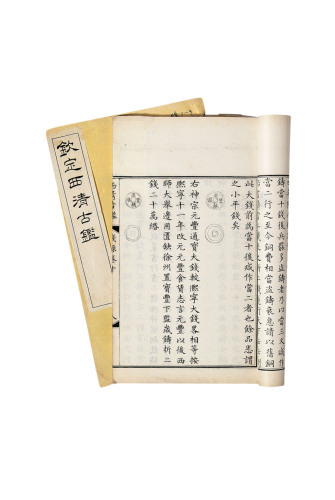 欽定西清古鑑
鑄當十錢後兵罷多盜鑄者乃以當三又減
當二行之至今銅費相當盜鑄衰息請以舊銅
此大錢前為當十後減作當二者也餘品悉謂
之小平錢矣
右神宗元豐通寶大錢較熙寧大錢畧相等按
熙寧十一年改元元豐食貨志言元豐以後西
師大舉邊用匱缺徐州置寶豐下監歲鑄折二
錢二十萬緡